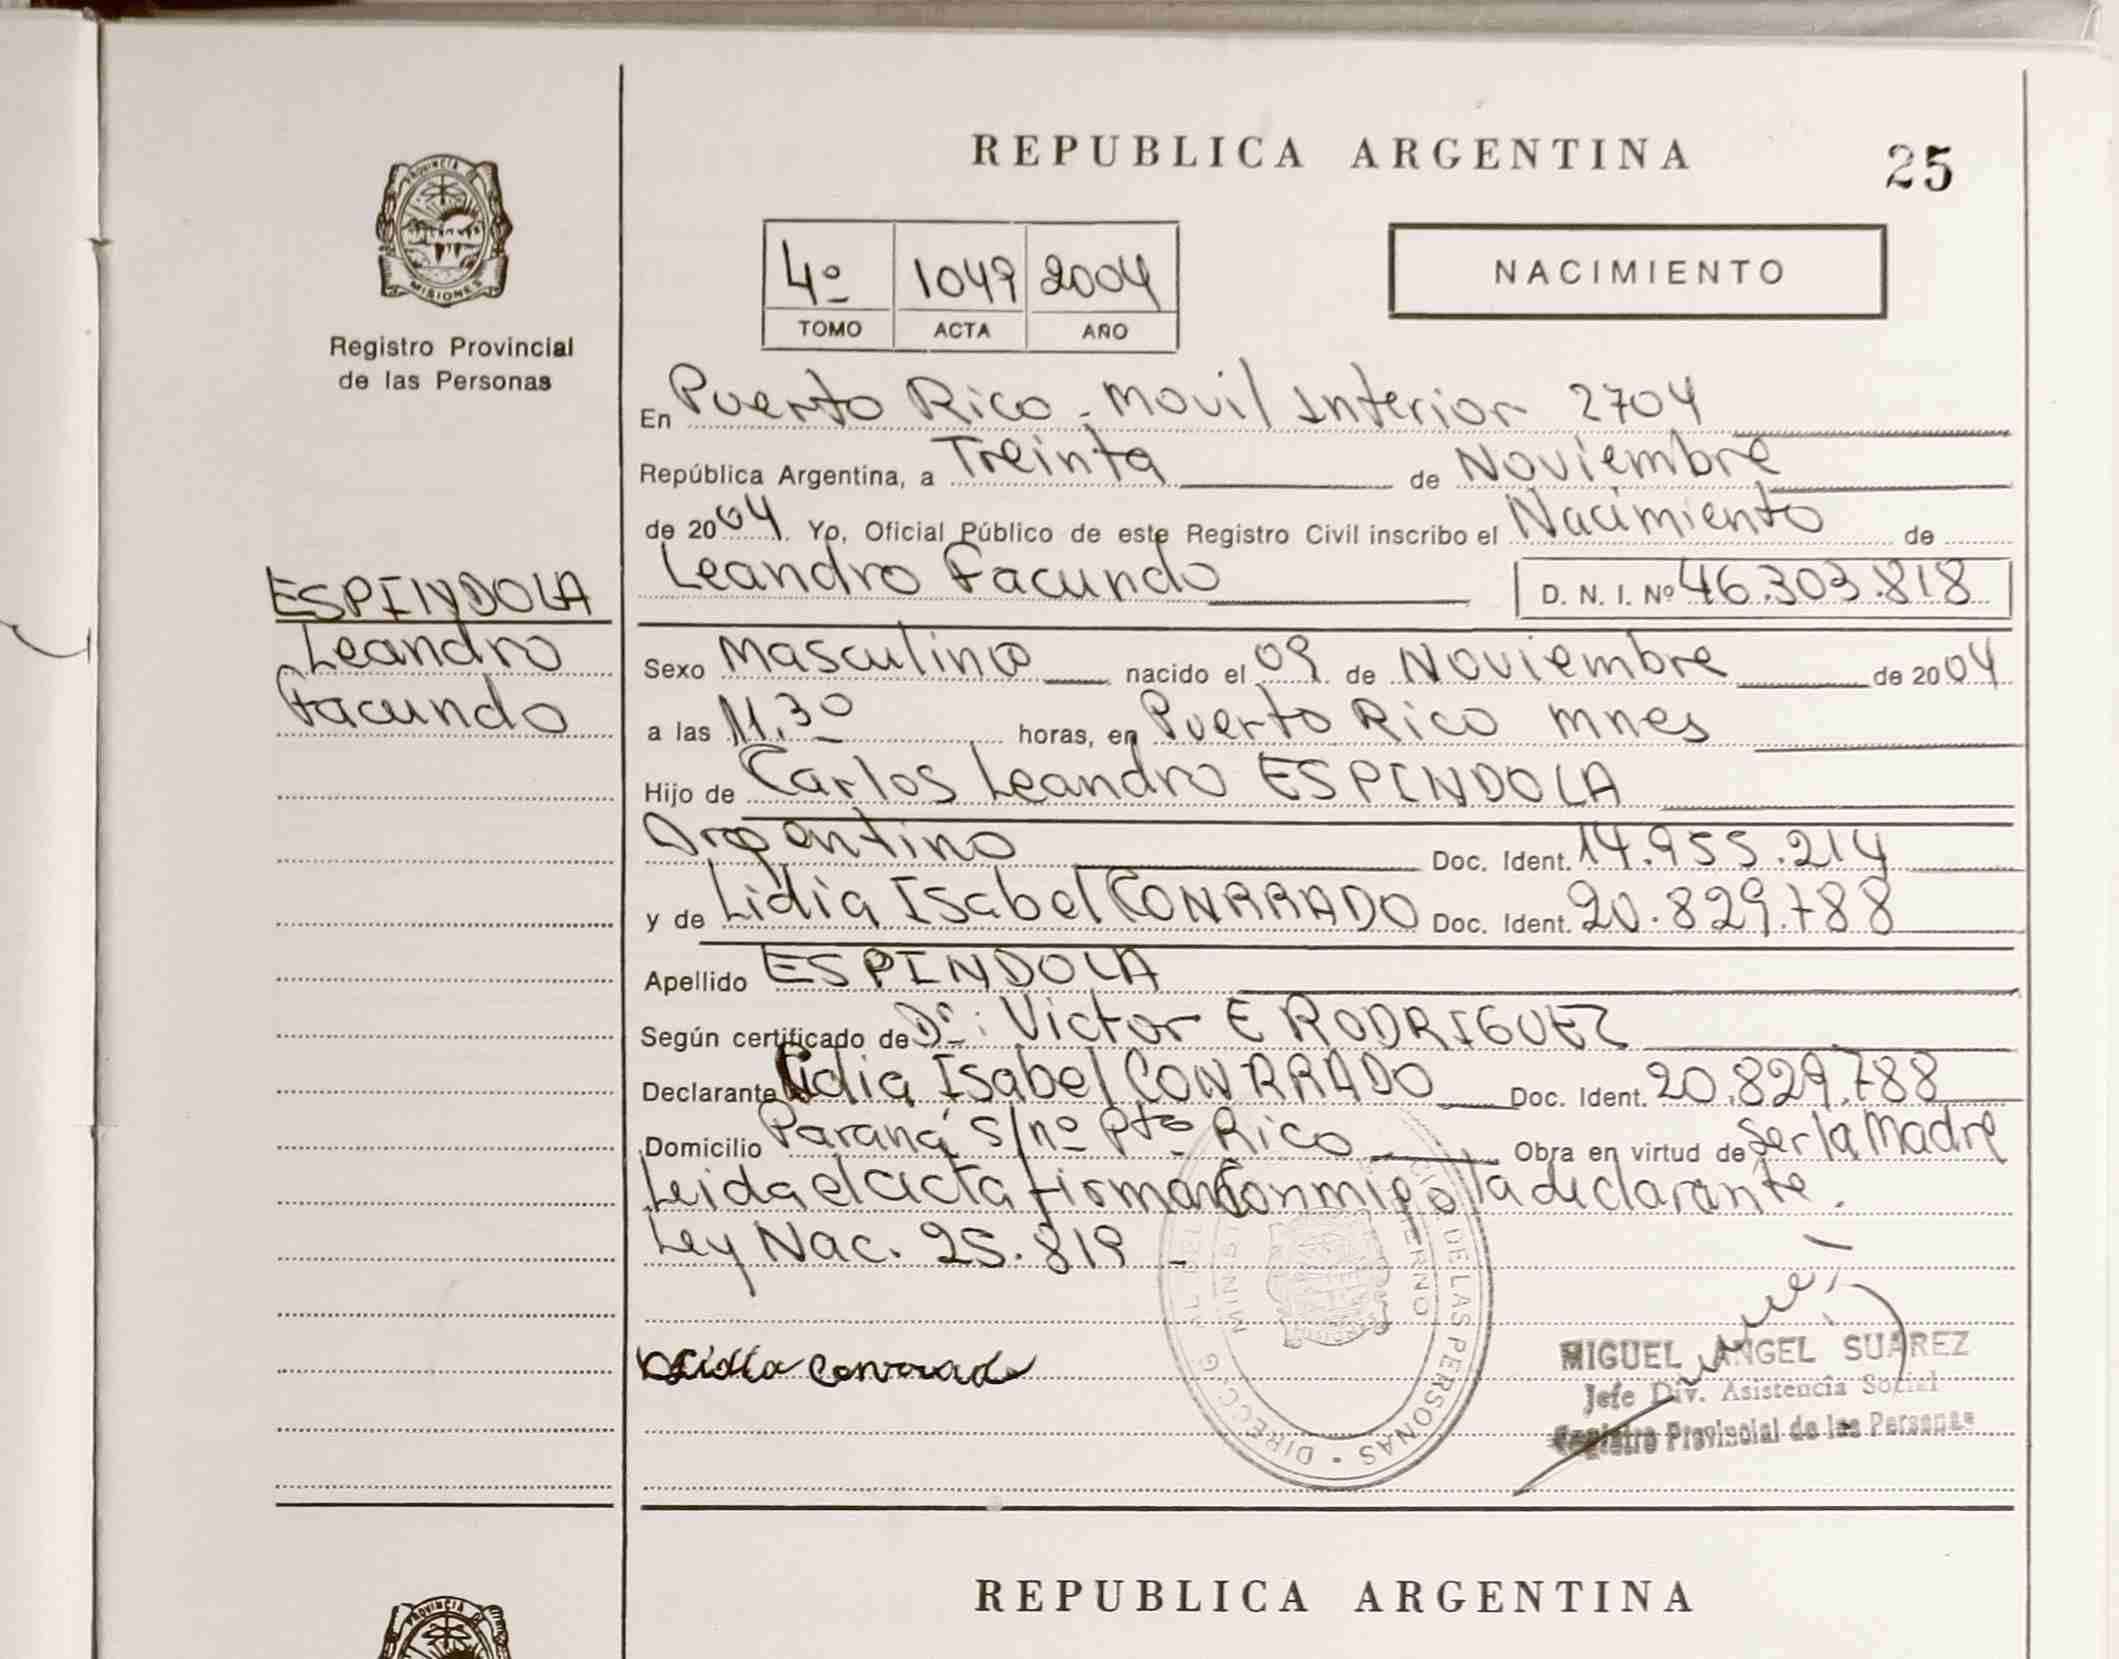 REPUBLICA ARGENTINA
25
PROVINCIA DE
MISIONES
Registro Provincial
de las Personas
4º 1049 2004
TOMO ACTA AÑO
NACIMIENTO
En Puerto Rico - Movil Interior 2704
República Argentina, a Treinta de Noviembre
de 2004 Yo, Oficial Público de este Registro Civil inscribo el Nacimiento de
Leandro Facundo D. N. I. Nº 46.303.818
ESPINDOLA
Leandro
Facundo
Sexo Masculino nacido el 09 de Noviembre de 2004
a las 11.30 horas, en Puerto Rico Mnes
Hijo de Carlos Leandro ESPINDOLA
Argentino Doc. Ident. 14.955.214
y de Lidia Isabel CONRRADO Doc. Ident. 20.829.788
Apellido ESPINDOLA
Según certificado de Dr: Victor E RODRIGUEZ
Declarante Lidia Isabel CONRRADO Doc. Ident. 20.829.788
Domicilio Paraná s/nº Pto Rico Obra en virtud de Ser la Madre
Leida el acta firman conmigo la declarante.
Ley Nac. 25.819
Lidia Conrrado
DE LAS PERSONAS
MIGUEL ANGEL SUAREZ
Jefe Div. Asistencia Social
Registro Provincial de las Personas
REPUBLICA ARGENTINA
PROVINCIA